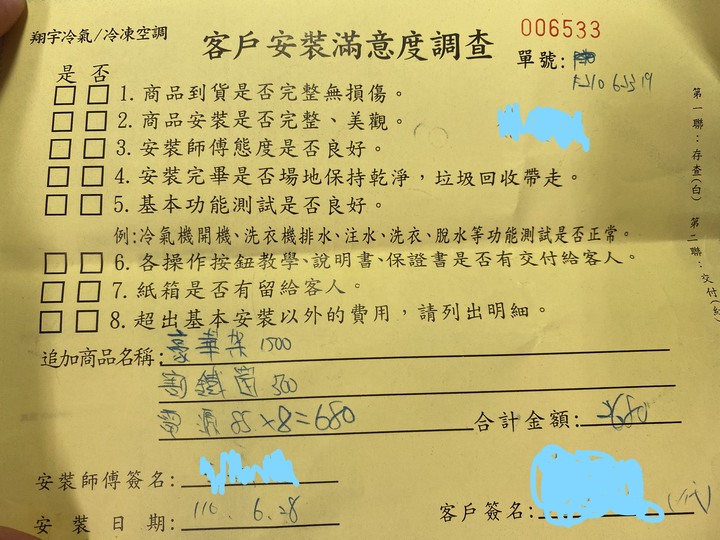 翔宇冷氣/冷凍空調
客戶安裝滿意度調查
006533
單號:
是 否
1. 商品到貨是否完整無損傷。
2. 商品安裝是否完整、美觀。
3. 安裝師傅態度是否良好。
4. 安裝完畢是否場地保持乾淨，垃圾回收帶走。
5. 基本功能測試是否良好。
例:冷氣機開機、洗衣機排水、注水、洗衣、脫水等功能測試是否正常。
6. 各操作按鈕教學、說明書、保證書是否有交付給客人。
7. 紙箱是否有留給客人。
8. 超出基本安裝以外的費用，請列出明細。
追加商品名稱: 豪華架 1500
鐵窗 500
電源 85×8=680
合計金額: 2680
安裝師傅簽名:
安裝日期: 110.6.28
客戶簽名:
第一聯:存查(白) 第二聯:交付